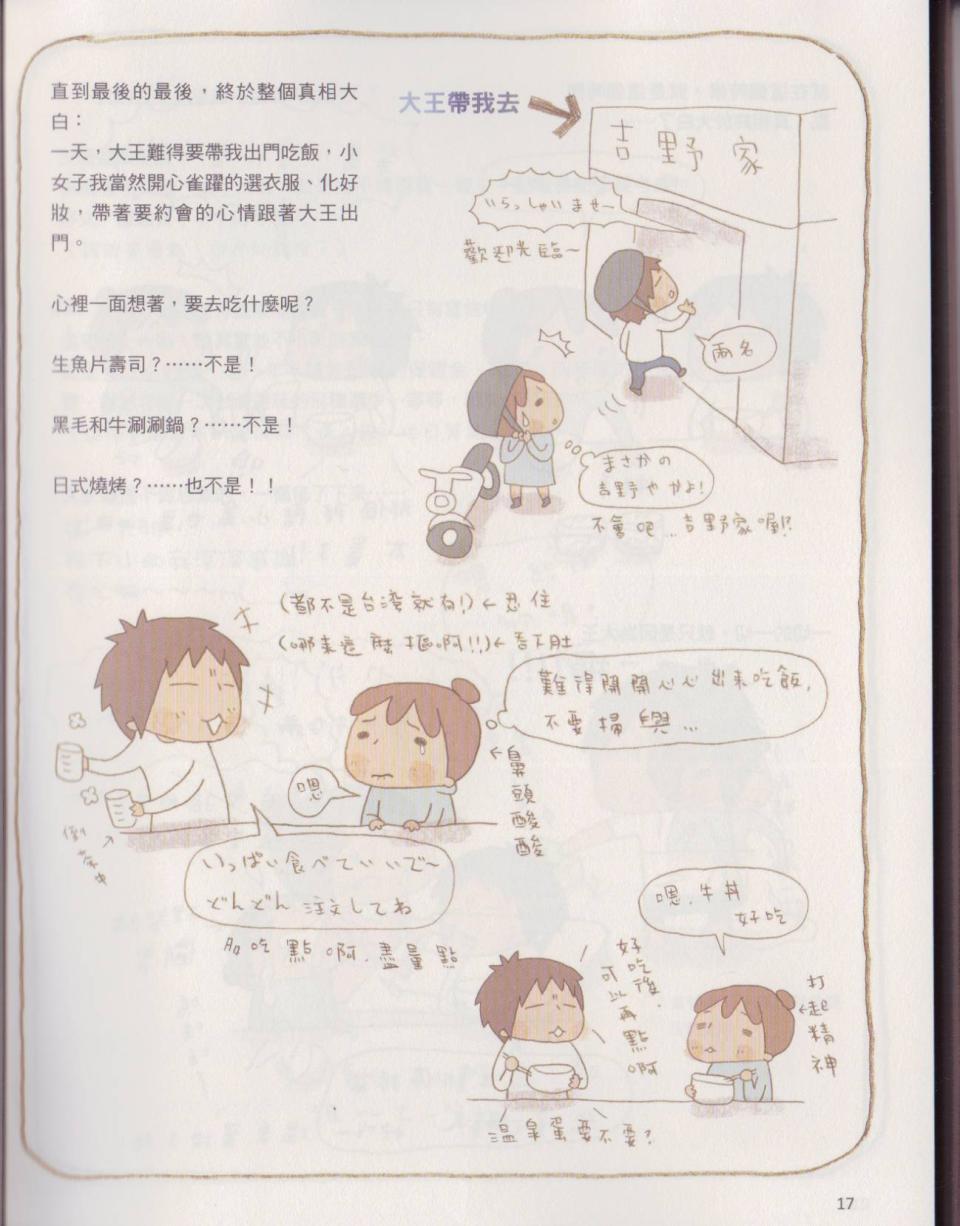 直到最後的最後，終於整個真相大
白：
一天，大王難得要帶我出門吃飯，小
女子我當然開心雀躍的選衣服、化好
妝，帶著要約會的心情跟著大王出
門。
心裡一面想著，要去吃什麼呢？
生魚片壽司？……不是！
黑毛和牛涮涮鍋？……不是！
日式燒烤？……也不是！！
大王帶我去
吉野家
いらっしゃいませ～
歡迎光臨～
兩名
まさかの
吉野やかよ!
不會吧…吉野家喔!?
(都不是台湾就有!)←忍住
(哪來這麼摳啊!!)←吞下肚
難得開開心心出來吃飯,
不要掃興…
←鼻頭酸酸
嗯
倒茶中
いっぱい食べていいで～
どんどん注文してね
多吃點啊.盡量點
嗯.牛丼
好吃
好吃後.
可以再點啊
←打起精神
溫泉蛋要不要?
17